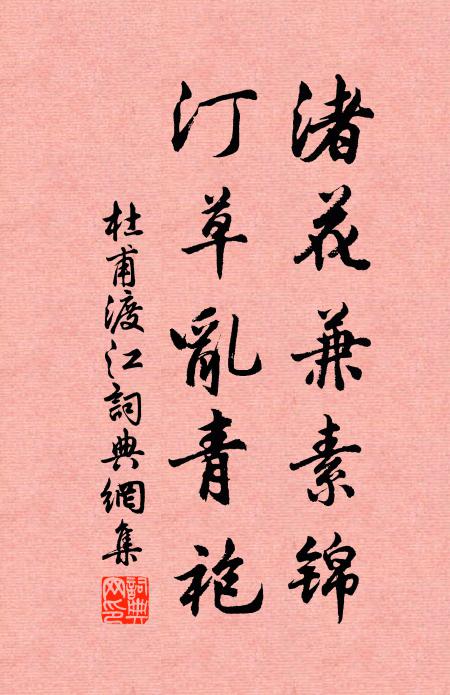 渚花兼素錦
汀草亂青袍
杜甫渡江詞典網集
詞典网印